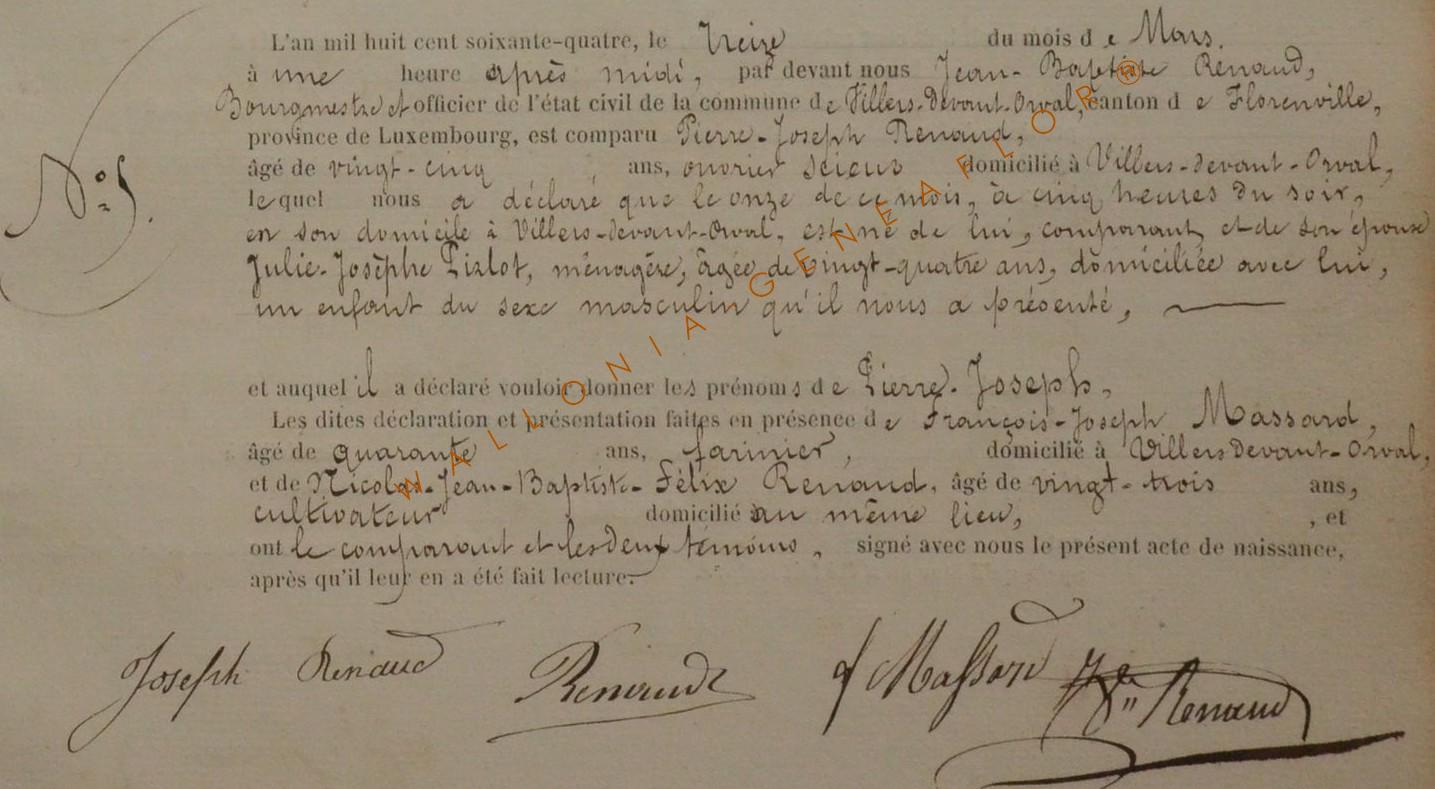 N° 5.
L'an mil huit cent soixante-quatre, le Treize du mois de Mars.
à une heure après midi, par devant nous Jean-Baptiste Renaud,
Bourgmestre et officier de l'état civil de la commune de Villers-Devant-Orval, canton de Florenville,
province de Luxembourg, est comparu Pierre-Joseph Renaud,
âgé de vingt-cinq ans, ouvrier scieur domicilié à Villers-devant-Orval,
lequel nous a déclaré que le onze de ce mois, à cinq heures du soir,
en son domicile à Villers-devant-Orval, est né de lui, comparant, et de son épouse
Julie-Josèphe Pirlot, ménagère, âgée de vingt-quatre ans, domiciliée avec lui,
un enfant du sexe masculin qu'il nous a présenté,
et auquel il a déclaré vouloir donner les prénoms de Pierre-Joseph,
Les dites déclaration et présentation faites en présence de François-Joseph Massard,
âgé de quarante ans, farinier, domicilié à Villers Devant-Orval,
et de Nicolas-Jean-Baptiste-Félix Renaud, âgé de vingt-trois ans,
cultivateur domicilié au même lieu, , et
ont le comparant et les deux témoins, signé avec nous le présent acte de naissance,
après qu'il leur en a été fait lecture.
Joseph Renaud Renaud f Masson Renaud
WALLONIA GENEAFLOR ®